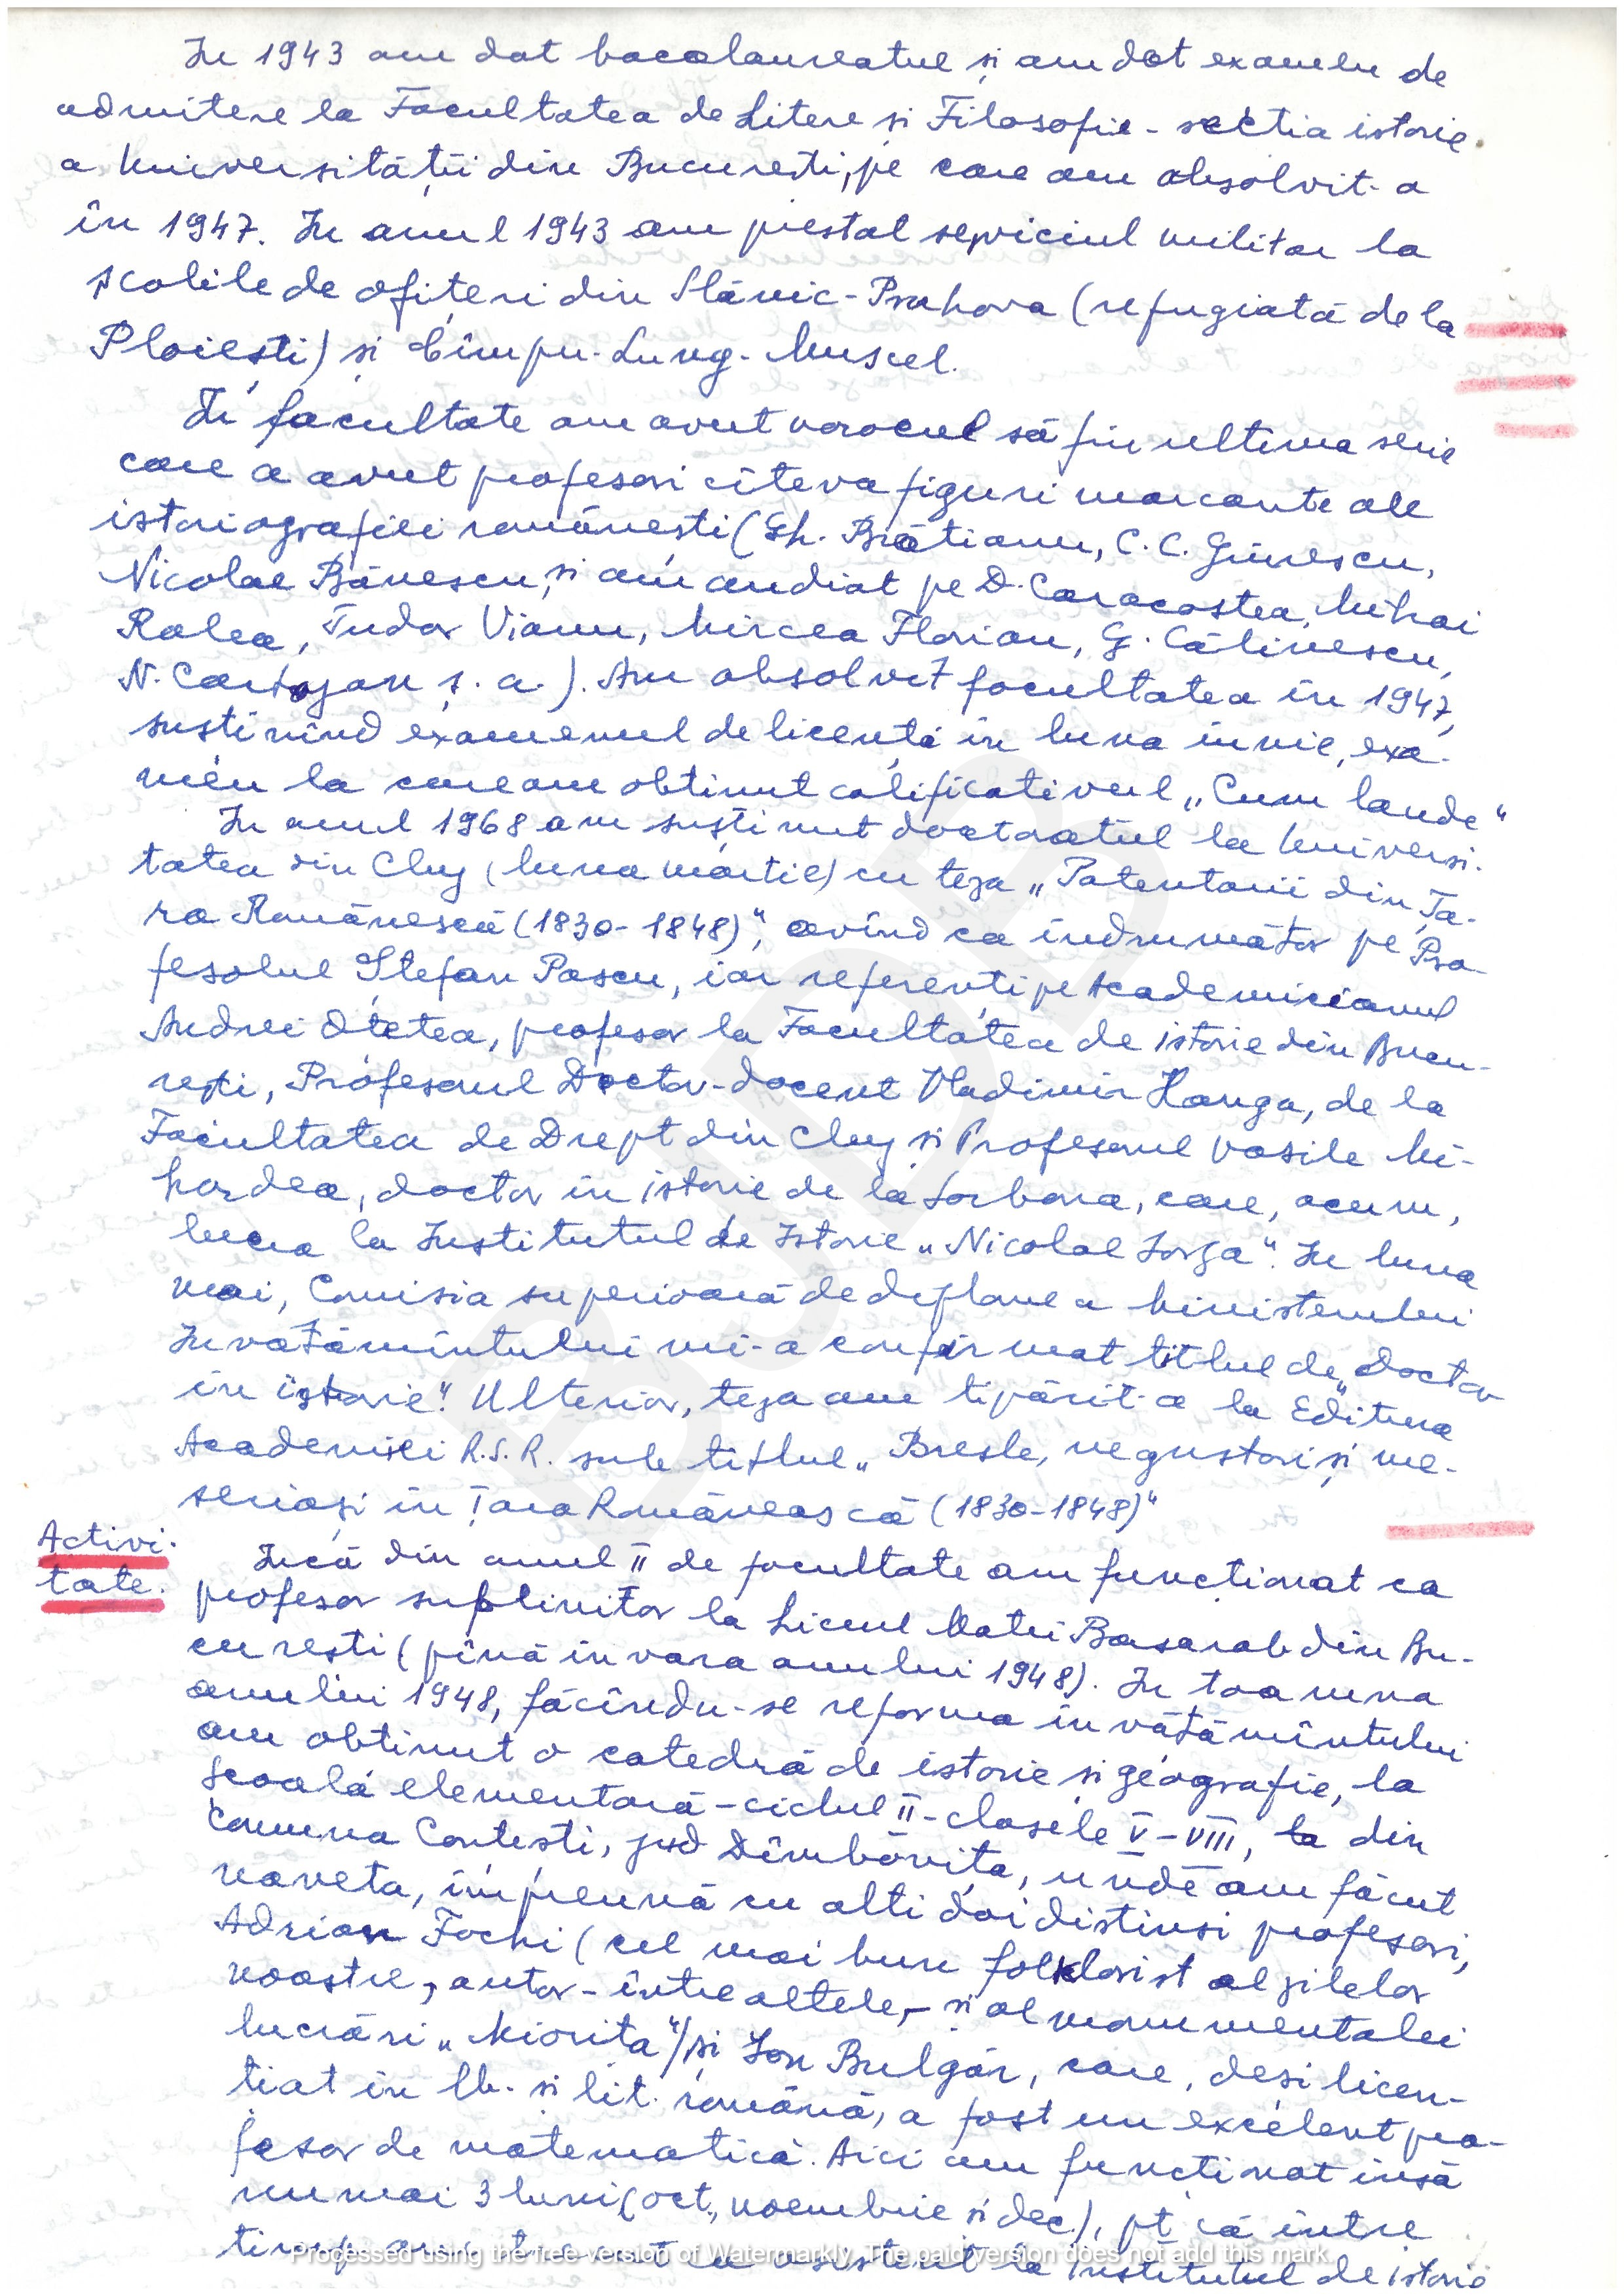 In 1943 am dat bacalaureatul și am dat examen de
admitere la Facultatea de Litere și Filosofie - secția istorie
a Universității din București, pe care am absolvit-a
în 1947. In anul 1943 am prestat serviciul militar la
școlile de ofițeri din Slănic-Prahova (refugiată de la
Ploiești) și Cîmpu-Lung-Muscel.
In facultate am avut norocul să fiu ultima serie
care a avut profesori cîteva figuri marcante ale
istoriografiei românești (Gh. Brătianu, C.C. Giurescu,
Nicolae Bănescu, și am audiat pe D. Caracostea, Mihai
Ralea, Tudor Vianu, Mircea Florian, G. Călinescu,
N. Cartojan ș.a.). Am absolvit facultatea în 1947,
susținînd examenul de licență în luna iunie, exa-
men la care am obținut calificativul „Cum laude"
In anul 1968 am susținut doctoratul la Universi-
tatea din Cluj (luna martie) cu teza „Patentarii din Ța-
ra Românescă (1830-1848)", avînd ca îndrumător pe Pro-
fesorul Ștefan Pascu, iar referenți pe Academicianul
Andrei Oțetea, profesor la Facultatea de istorie din Bucu-
rești, Profesorul Doctor-docent Vladimir Hanga, de la
Facultatea de Drept din Cluj și Profesorul Vasile Mi-
hordea, doctor în istorie de la Sorbona, care, acum,
lucra la Institutul de Istorie „Nicolae Iorga". In luna
mai, Comisia superioară de diplome a Ministerului
Invățămîntului mi-a confirmat titlul de „Doctor
în istorie". Ulterior, teza am tipărit-a la Editura
Academiei R.S.R. sub titlul „Bresle, negustori și me-
seriași în Țara Românească (1830-1848)"
Activi-
tate.
Incă din anul II de facultate am funcționat ca
profesor suplinitor la Liceul Matei Basarab din Bu-
curești (pînă în vara anului 1948). In toamna
anului 1948, făcîndu-se reforma învățămîntului
am obținut o catedră de istorie și geografie, la
școală elementară - ciclul II - clasele V-VIII, la din
Comuna Contești, jud Dîmbovița, unde am făcut
naveta, împreună cu alți doi distinși profesori,
Adrian Fochi (cel mai bun folklorist al zilelor
noastre, autor - între altele, - și al monumentalei
lucrări „Miorița"/ și Ion Bulgăr, care, deși licen-
țiat în lb. și lit. română, a fost un excelent pro-
fesor de matematică. Aici am funcționat însă
numai 3 luni (oct., noembrie și dec.), pt că între
timp am a asistent la Institutul de istorie
BJDB
Processed using the free version of Watermarkly. The paid version does not add this mark.